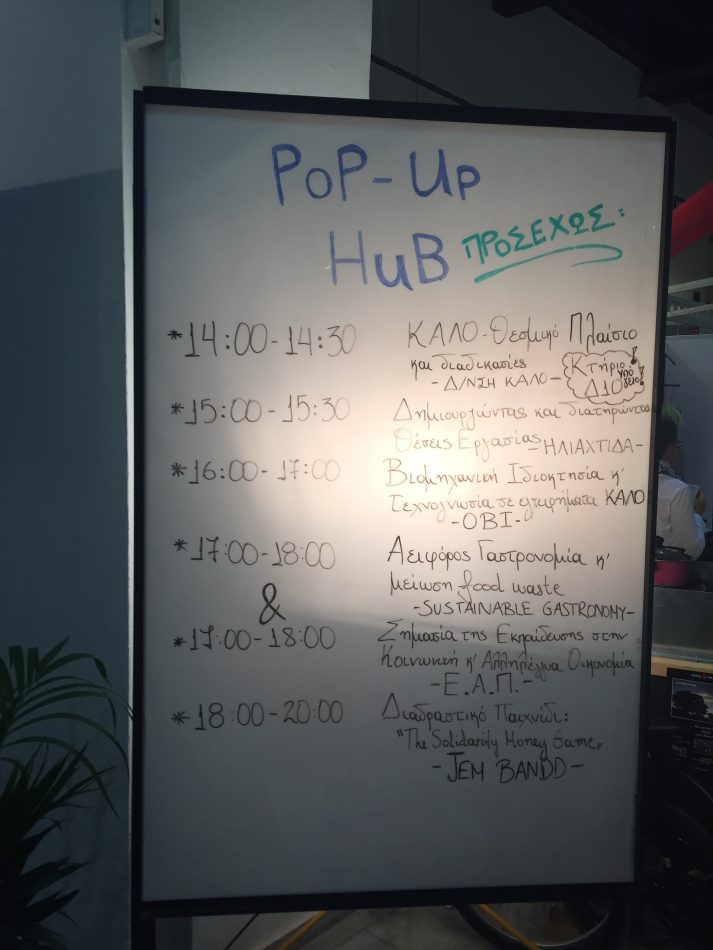 PoP-Up
HuB ΠΡΟΣΕΧΩΣ:
*14:00-14:30 ΚΑΛΟ-Θεσμικό Πλαίσιο
και διαδικασίες
- Δ/ΝΣΗ ΚΑΛΟ-
Κτήριο
Δ10 υπόγειο!
*15:00-15:30 Δημιουργώντας και διατηρώντας
Θέσεις Εργασίας -ΗΛΙΑΧΤΙΔΑ-
*16:00-17:00 Βιομηχανική Ιδιοκτησία κ'
Τεχνογνωσία σε εγχειρήματα ΚΑΛΟ
-ΟΒΙ-
*17:00-18:00 Αειφόρος Γαστρονομία κ'
μείωση food waste
-SUSTAINABLE GASTRONOMY-
&
*17:00-18:00 Σημασία της Εκπαίδευσης στην
Κοινωνική κ' Αλληλέγγυα Οικονομία
-Ε.Α.Π.-
*18:00-20:00 Διαδραστικό Παιχνίδι:
"The Solidarity Money Game"
-JEM BANDD-